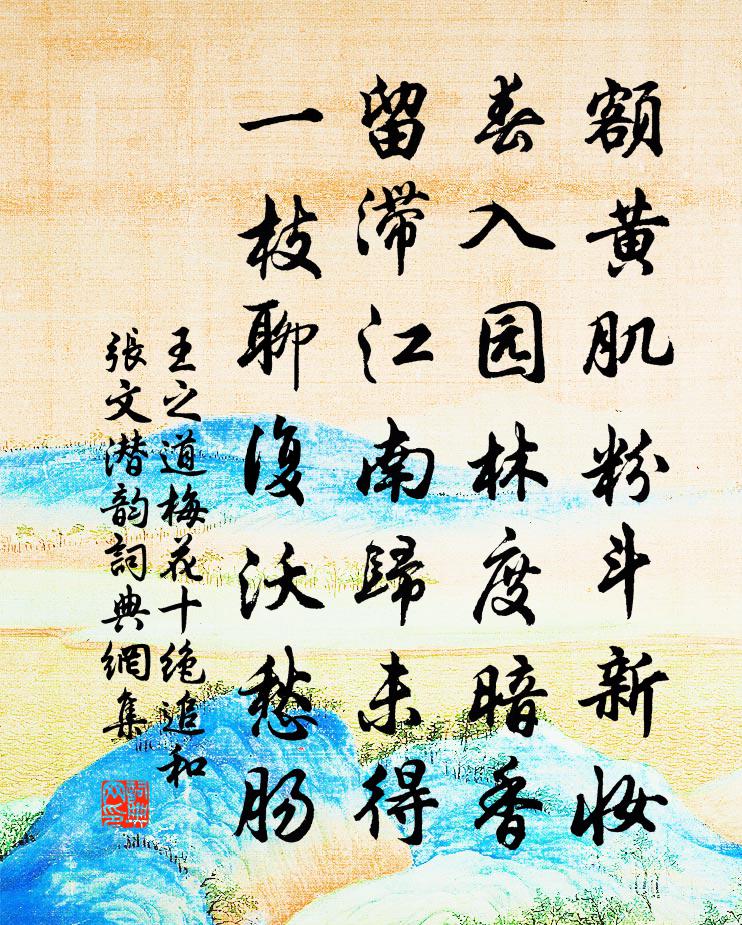 额黄肌粉斗新妆
春入园林度暗香
留滞江南歸未得
一枝聊復沃愁肠
王之道梅花十绝追和
張文潜韵詞典網集